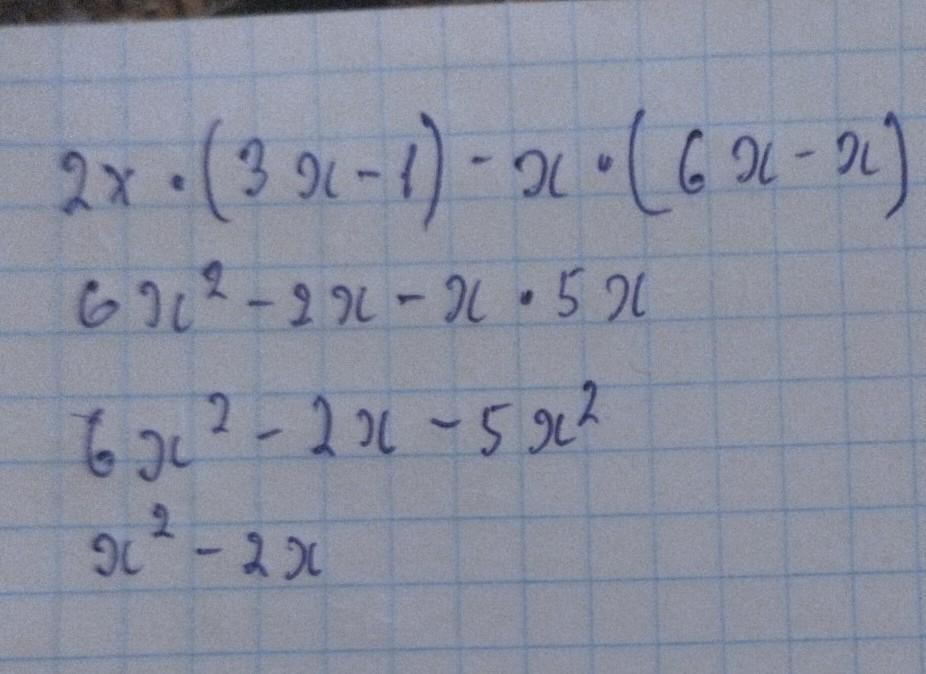 2x · (3x - 1) - x · (6x - x)
6x² - 2x - x · 5x
6x² - 2x - 5x²
x² - 2x